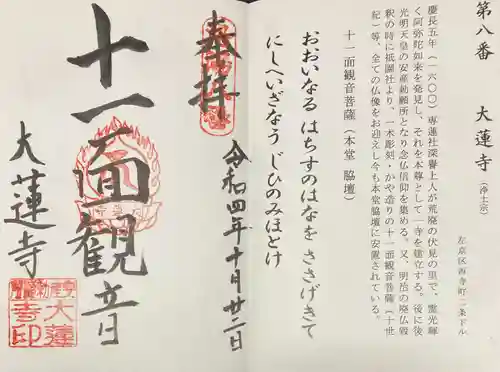 第八番　大蓮寺（浄土宗）
左京区西寺町二条下ル
慶長五年（一六〇〇）専蓮社深誉上人が荒廃の伏見の里で、霊光輝
く阿弥陀如来を発見し、それを本尊として一寺を建立する。後に後
光明天皇の安産勅願所となり念仏信仰を集める。又、明治の廃仏毀
釈の時に祇園社より、一木彫刻・かや造りの十一面観音菩薩（十世
紀）等、全ての仏像をお迎えし今も本堂脇壇に安置されている。
十一面観音菩薩（本堂　脇壇）
おおいなる はちすのはなを ささげきて
にしへいざなう じひのみほとけ
奉拝
令和四年十月廿二日
十一面観音
大蓮寺
大蓮
寺印